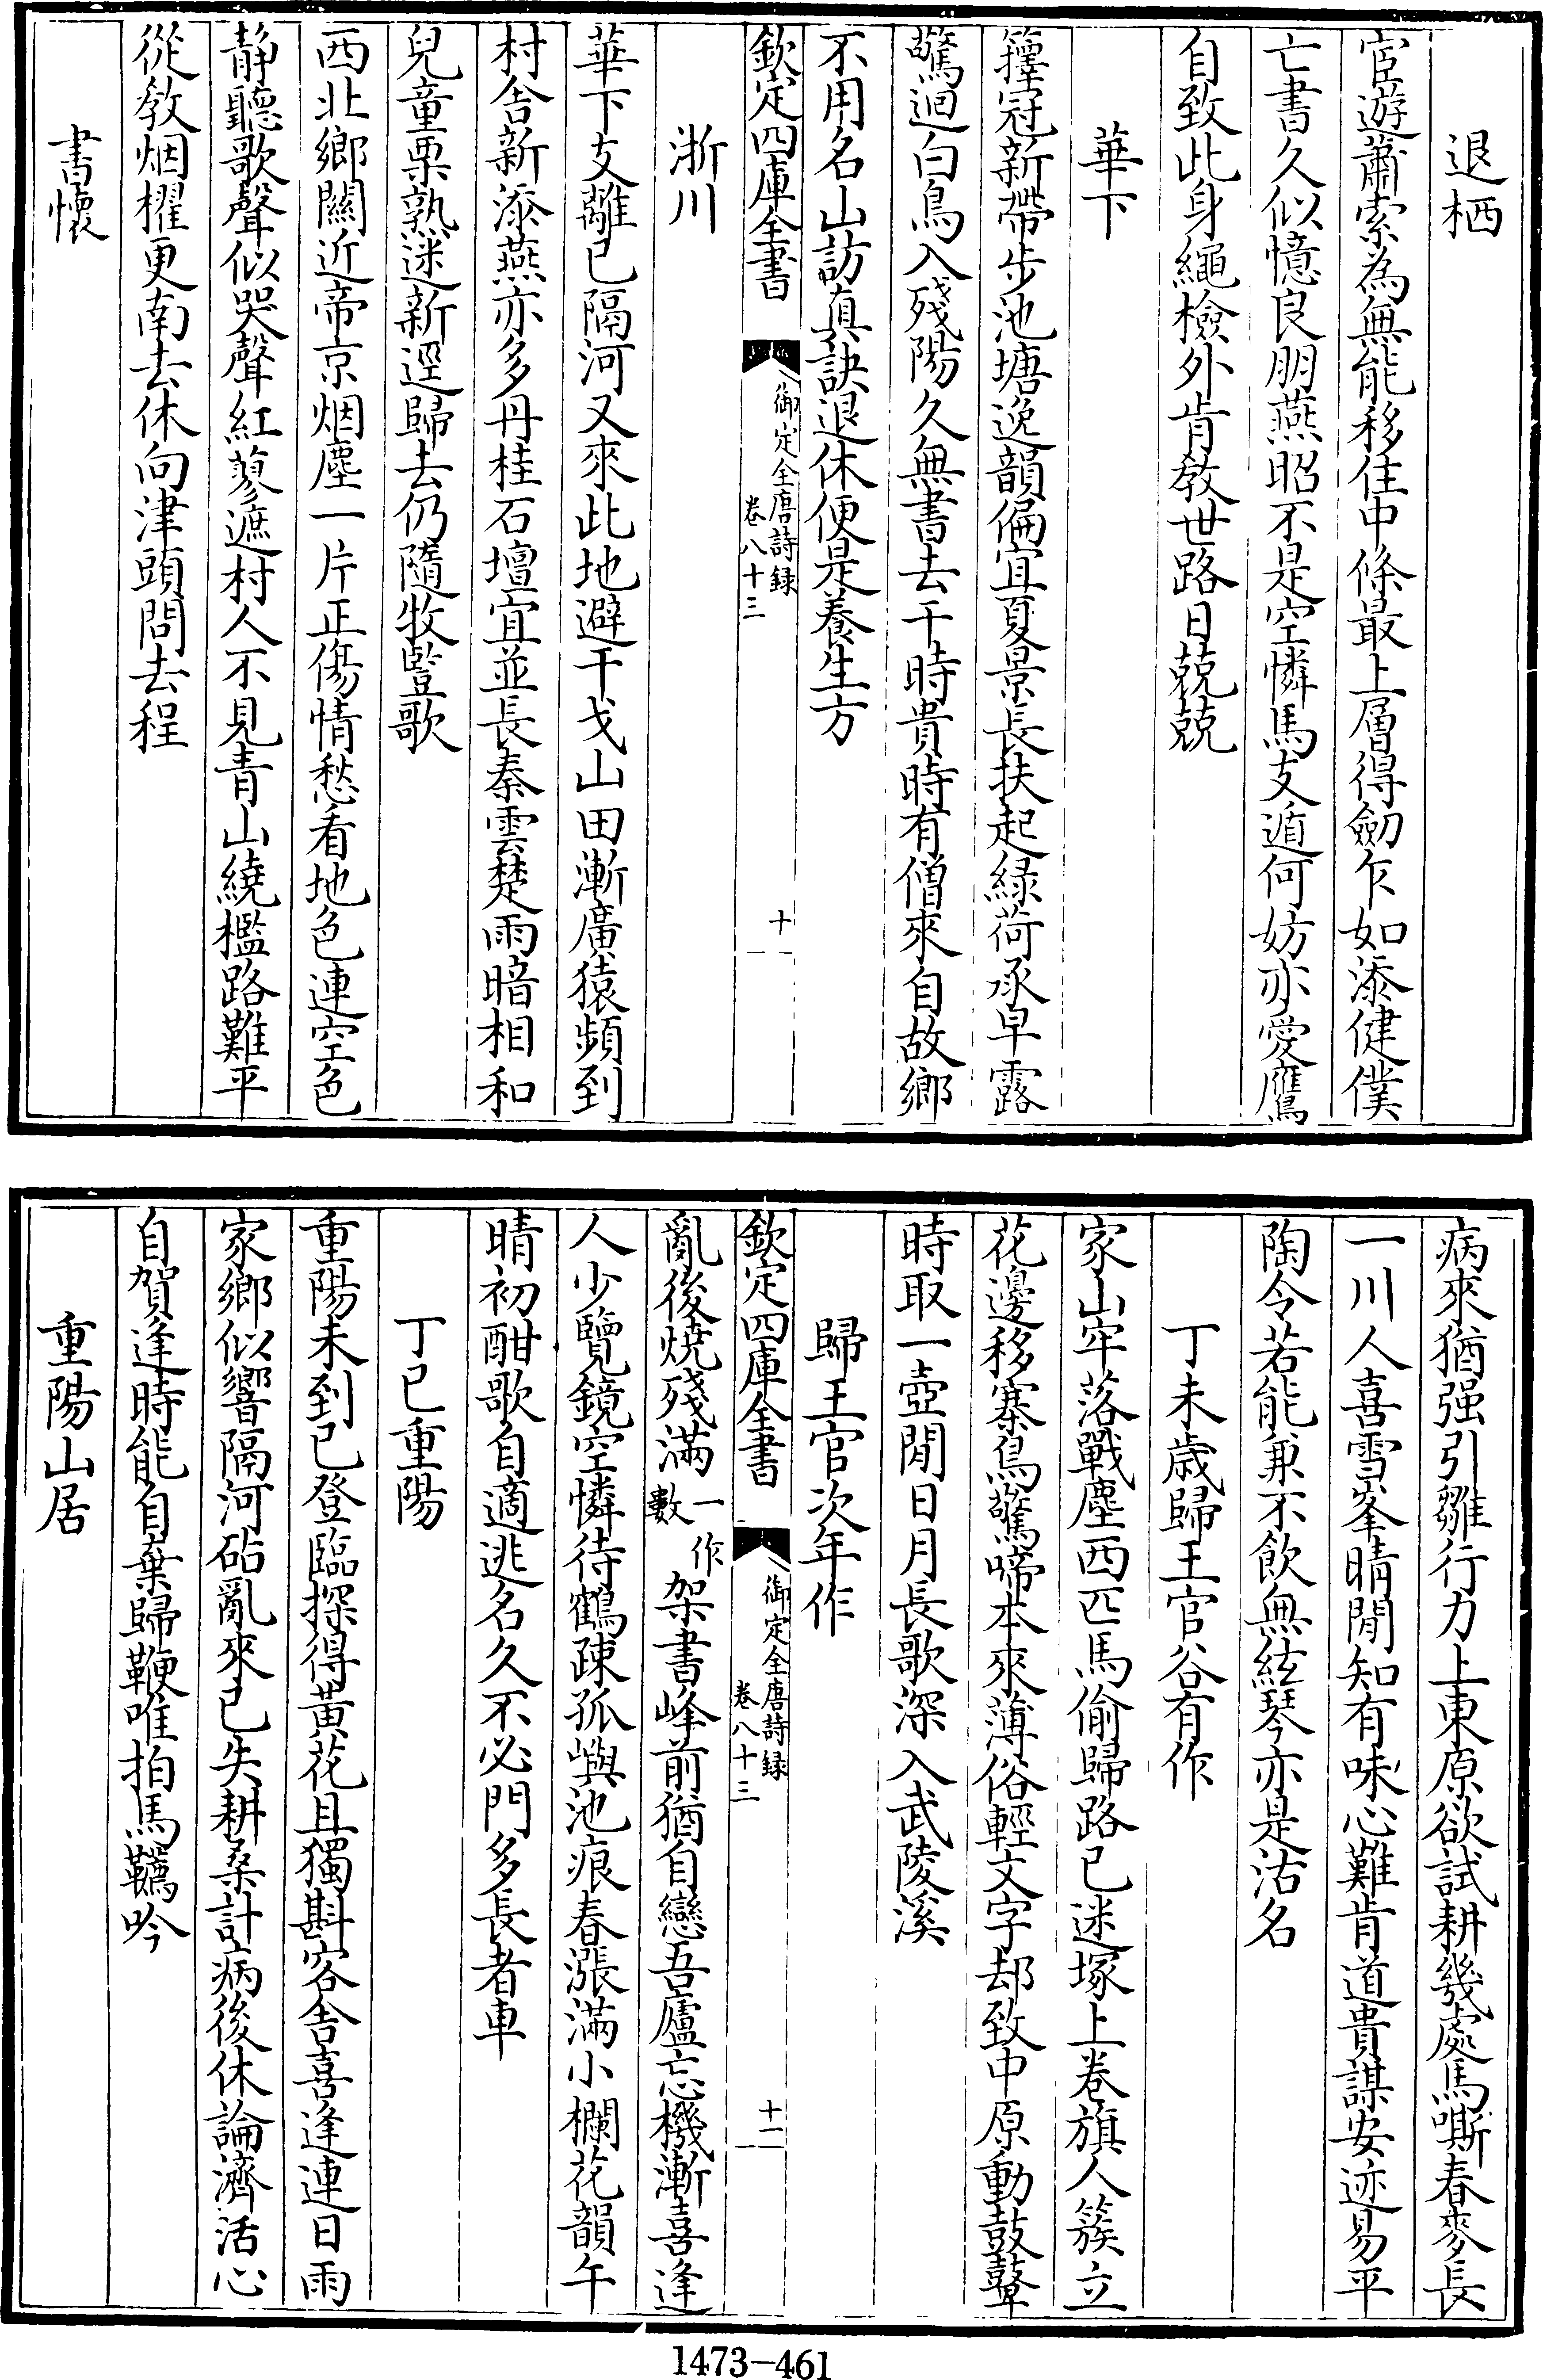 退栖
宦遊蕭索為無能移住中條最上層得劒乍如添健僕
亡書久似憶良朋燕昭不是空憐馬支遁何妨亦愛鷹
自致此身繩檢外肯教世路日兢兢
華下
籜冠新帶步池塘逸韻偏宜夏景長扶起緑荷承早露
驚迴白鳥入殘陽久無書去干時貴時有僧來自故鄉
不用名山訪真訣退休便是養生方
欽定四庫全書
御定全唐詩録
卷八十三
十
浙川
華下支離已隔河又來此地避干戈山田漸廣猿頻到
村舎新添燕亦多丹桂石壇宜並長秦雲楚雨暗相和
兒童栗熟迷新逕歸去仍隨牧豎歌
西北鄉關近帝京烟塵一片正傷情愁看地色連空色
静聽歌聲似哭聲紅蓼遮村人不見青山繞檻路難平
從教烟櫂更南去休向津頭問去程
書懷
病來猶强引雛行力上東原欲試耕幾處馬嘶春麥長
一川人喜雪峯晴閒知有味心難肯道貴謀安迹易平
陶令若能兼不飲無絃琴亦是沽名
丁未歳歸王官谷有作
家山牢落戰塵西匹馬偷歸路已迷塚上卷旗人簇立
花邊移寨鳥驚啼本來薄俗輕文字却致中原動鼓鼙
時取一壺閒日月長歌深入武陵溪
歸王官次年作
欽定四庫全書
御定全唐詩録
卷八十三
十一
亂後燒殘滿一作數架書峰前猶自戀吾廬忘機漸喜逢
人少覽鏡空憐待鶴疎孤嶼池痕春漲滿小欄花韻午
晴初酣歌自適逃名久不必門多長者車
丁巳重陽
重陽未到已登臨探得黃花且獨斟客舎喜逢連日雨
家鄉似響隔河砧亂來已失耕桑計病後休論濟活心
自賀逢時能自棄歸鞭唯拍馬韉吟
重陽山居
1473-461